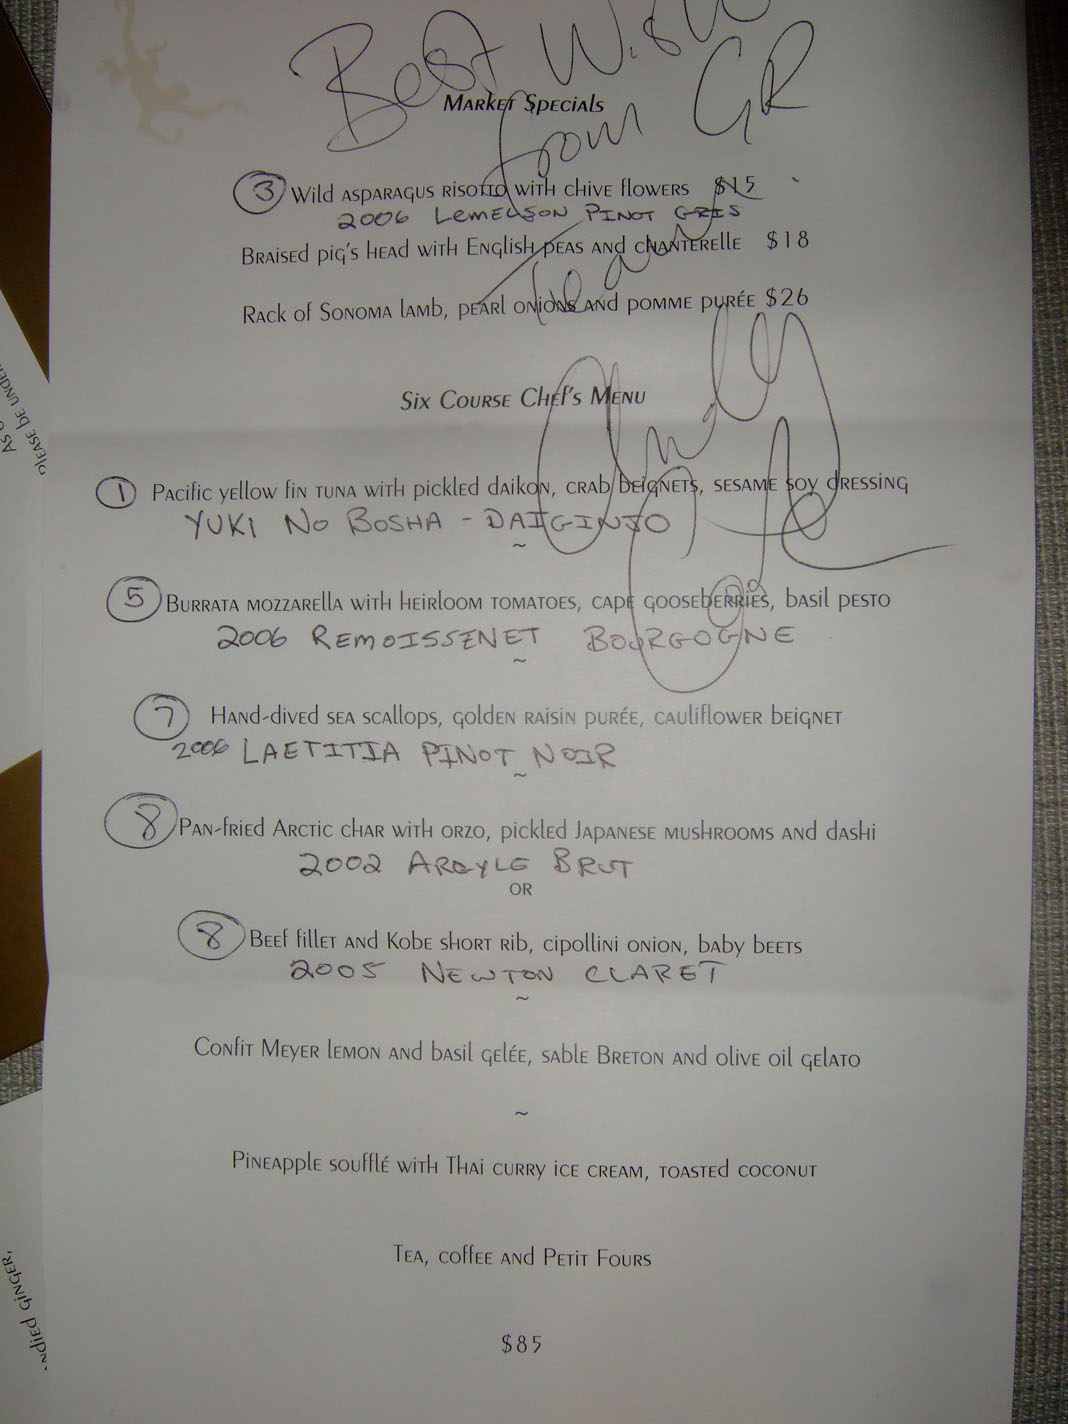 Best Wish
Market Specials
from GR
3 Wild asparagus risotto with chive flowers $15
2006 Lemelson Pinot Gris
Braised pig's head with English peas and chanterelle $18
Team
Rack of Sonoma lamb, pearl onions and pomme purée $26
Six Course Chef's Menu
1 Pacific yellow fin tuna with pickled daikon, crab beignets, sesame soy dressing
YUKI NO BOSHA - DAIGINJO
~
5 Burrata mozzarella with heirloom tomatoes, cape gooseberries, basil pesto
2006 REMOISSENET BOURGOGNE
~
7 Hand-dived sea scallops, golden raisin purée, cauliflower beignet
2006 LAETITIA PINOT NOIR
~
8 Pan-fried Arctic char with orzo, pickled Japanese mushrooms and dashi
2002 ARGYLE BRUT
or
8 Beef fillet and Kobe short rib, cipollini onion, baby beets
2005 NEWTON CLARET
~
Confit Meyer lemon and basil gelée, sable Breton and olive oil gelato
~
Pineapple soufflé with Thai curry ice cream, toasted coconut
Tea, coffee and Petit Fours
$85
Please be
ginger,